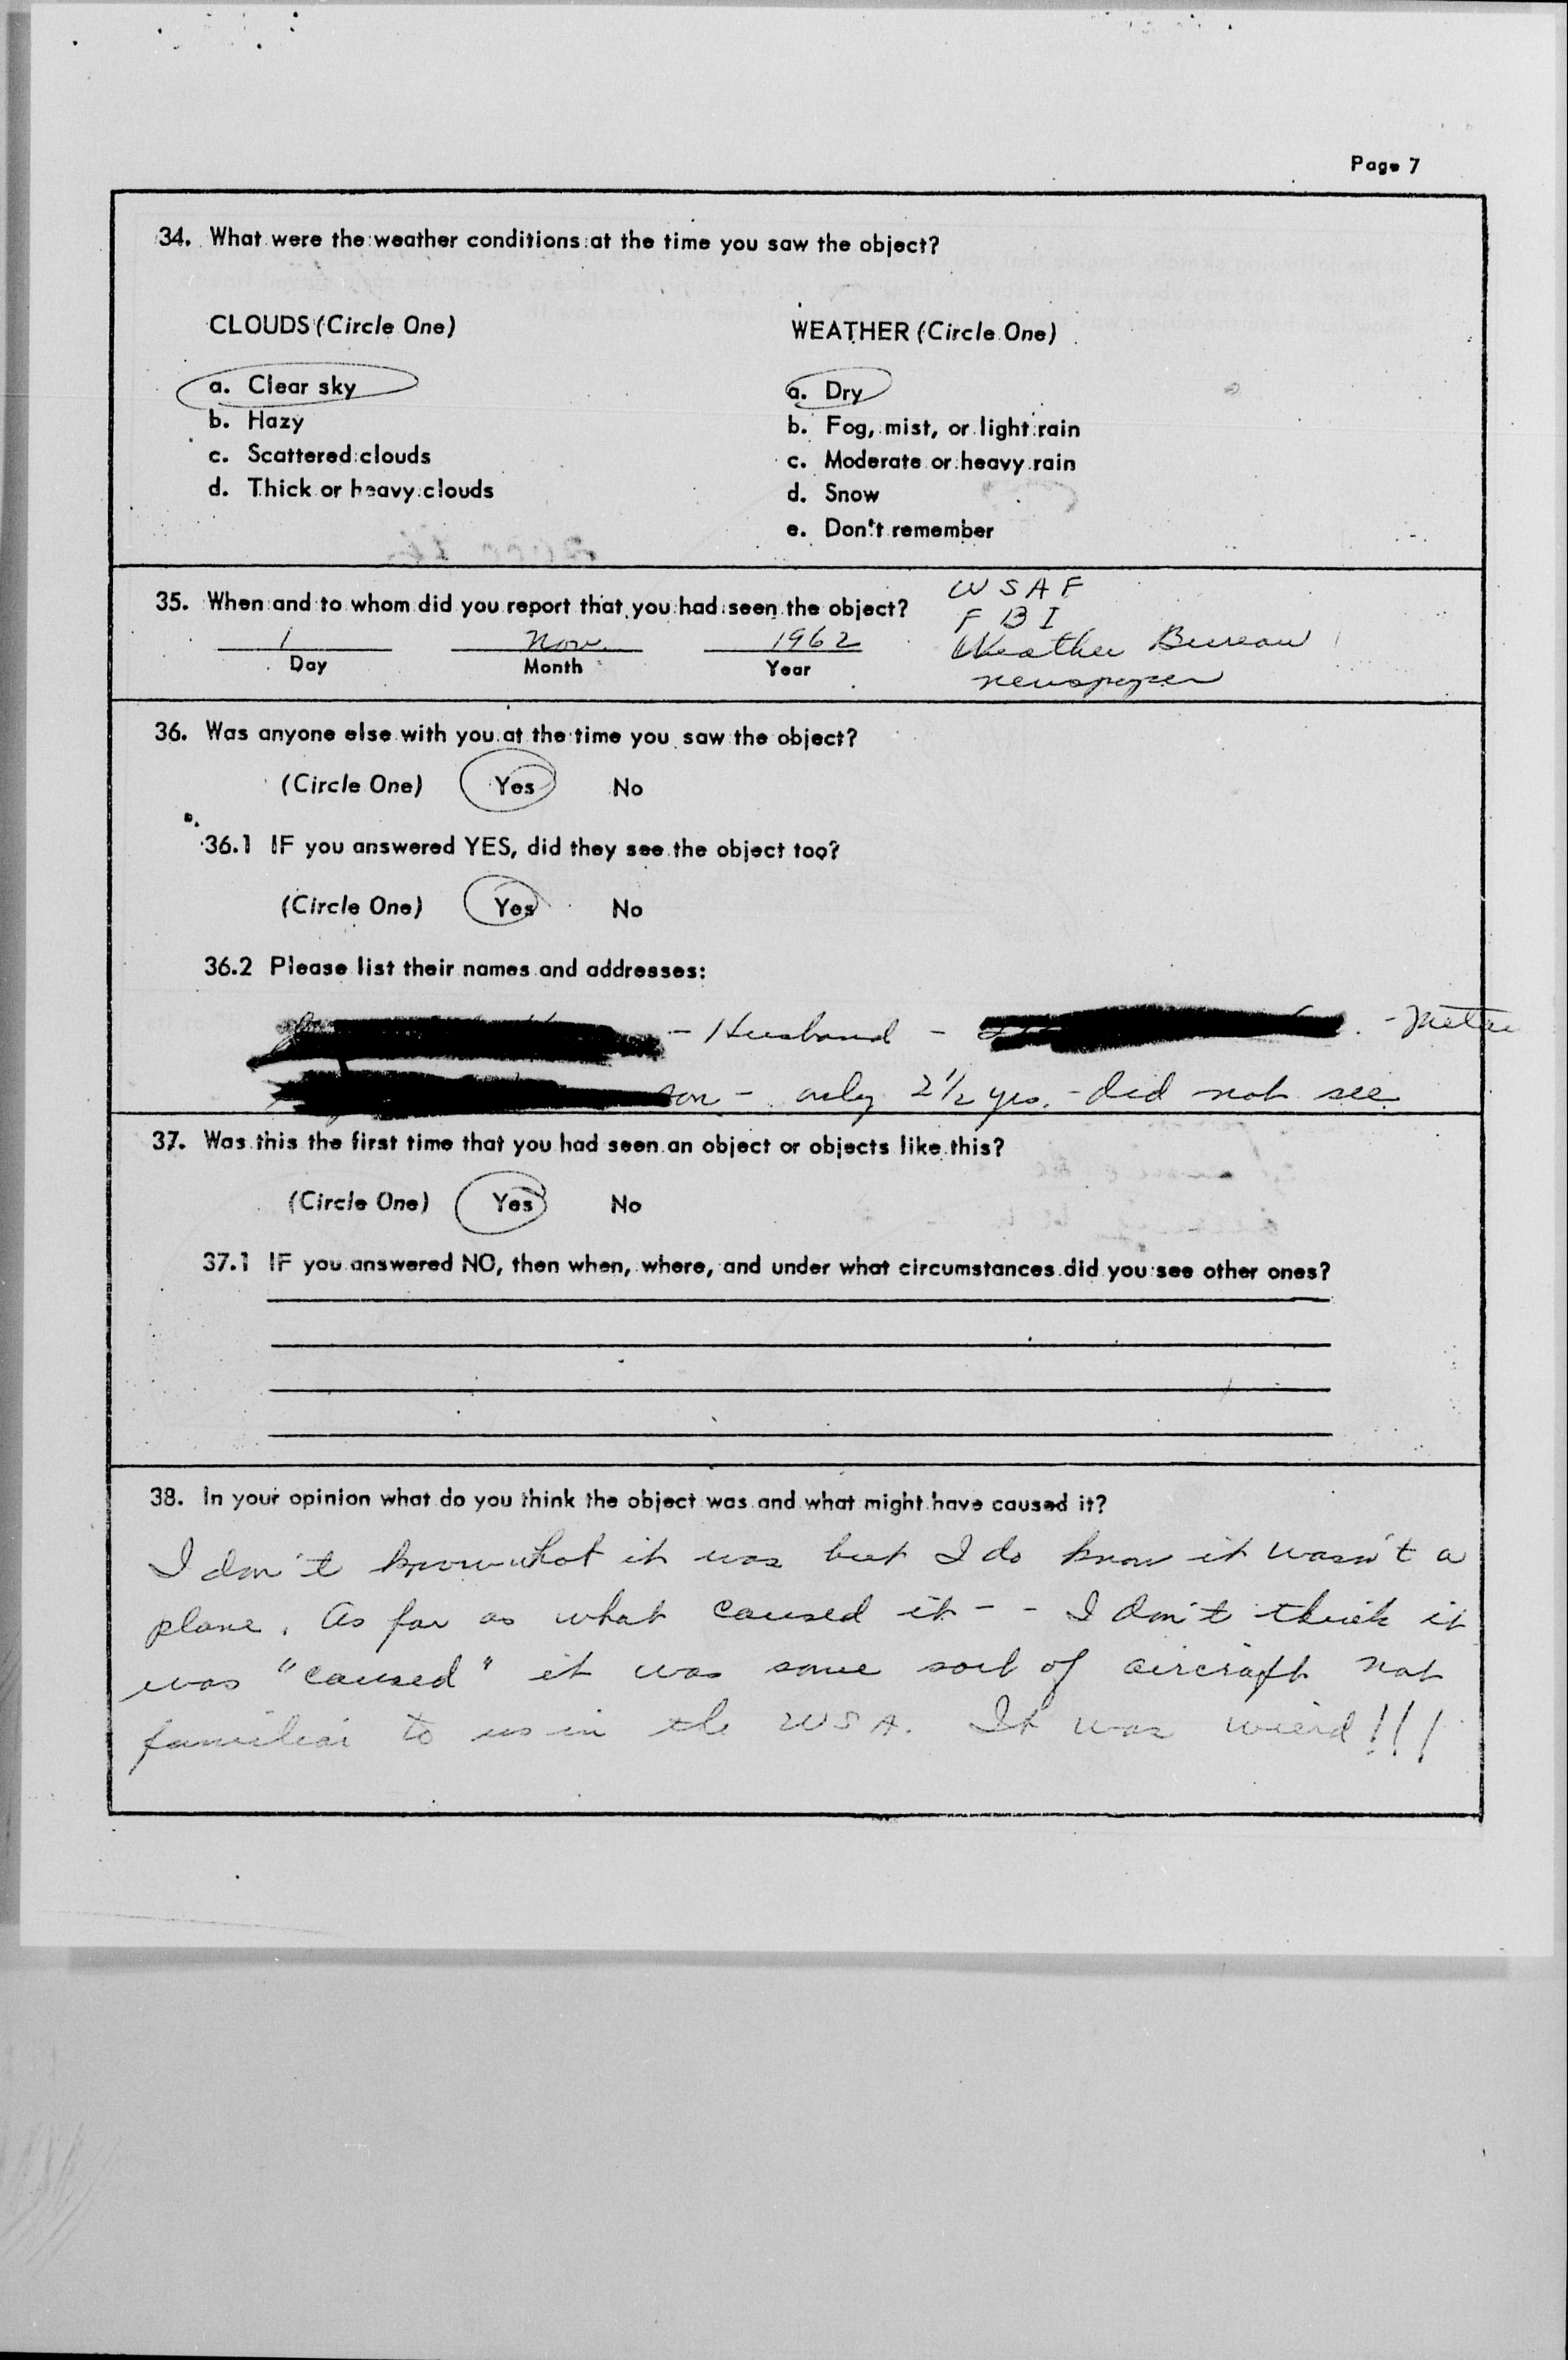 Page 7
34. What were the weather conditions at the time you saw the object?
CLOUDS (Circle One)
WEATHER (Circle One)
a. Clear sky
a. Dry
b. Hazy
b. Fog, mist, or light rain
c. Scattered clouds
c. Moderate or heavy rain
d. Thick or heavy clouds
d. Snow
e. Don't remember
35. When and to whom did you report that you had seen the object?
USAF
FBI
1 Nov. 1962
Weather Bureau
Day Month Year
newspaper
36. Was anyone else with you at the time you saw the object?
(Circle One) Yes No
36.1 IF you answered YES, did they see the object too?
(Circle One) Yes No
36.2 Please list their names and addresses:
- Husband - . -
son - only 2½ yrs. - did not see
37. Was this the first time that you had seen an object or objects like this?
(Circle One) Yes No
37.1 IF you answered NO, then when, where, and under what circumstances did you see other ones?
38. In your opinion what do you think the object was and what might have caused it?
I don't know what it was but I do know it wasn't a
plane. As far as what caused it - - I don't think it
was "caused" it was some sort of aircraft not
familiar to us in the USA. It was wierd!!!